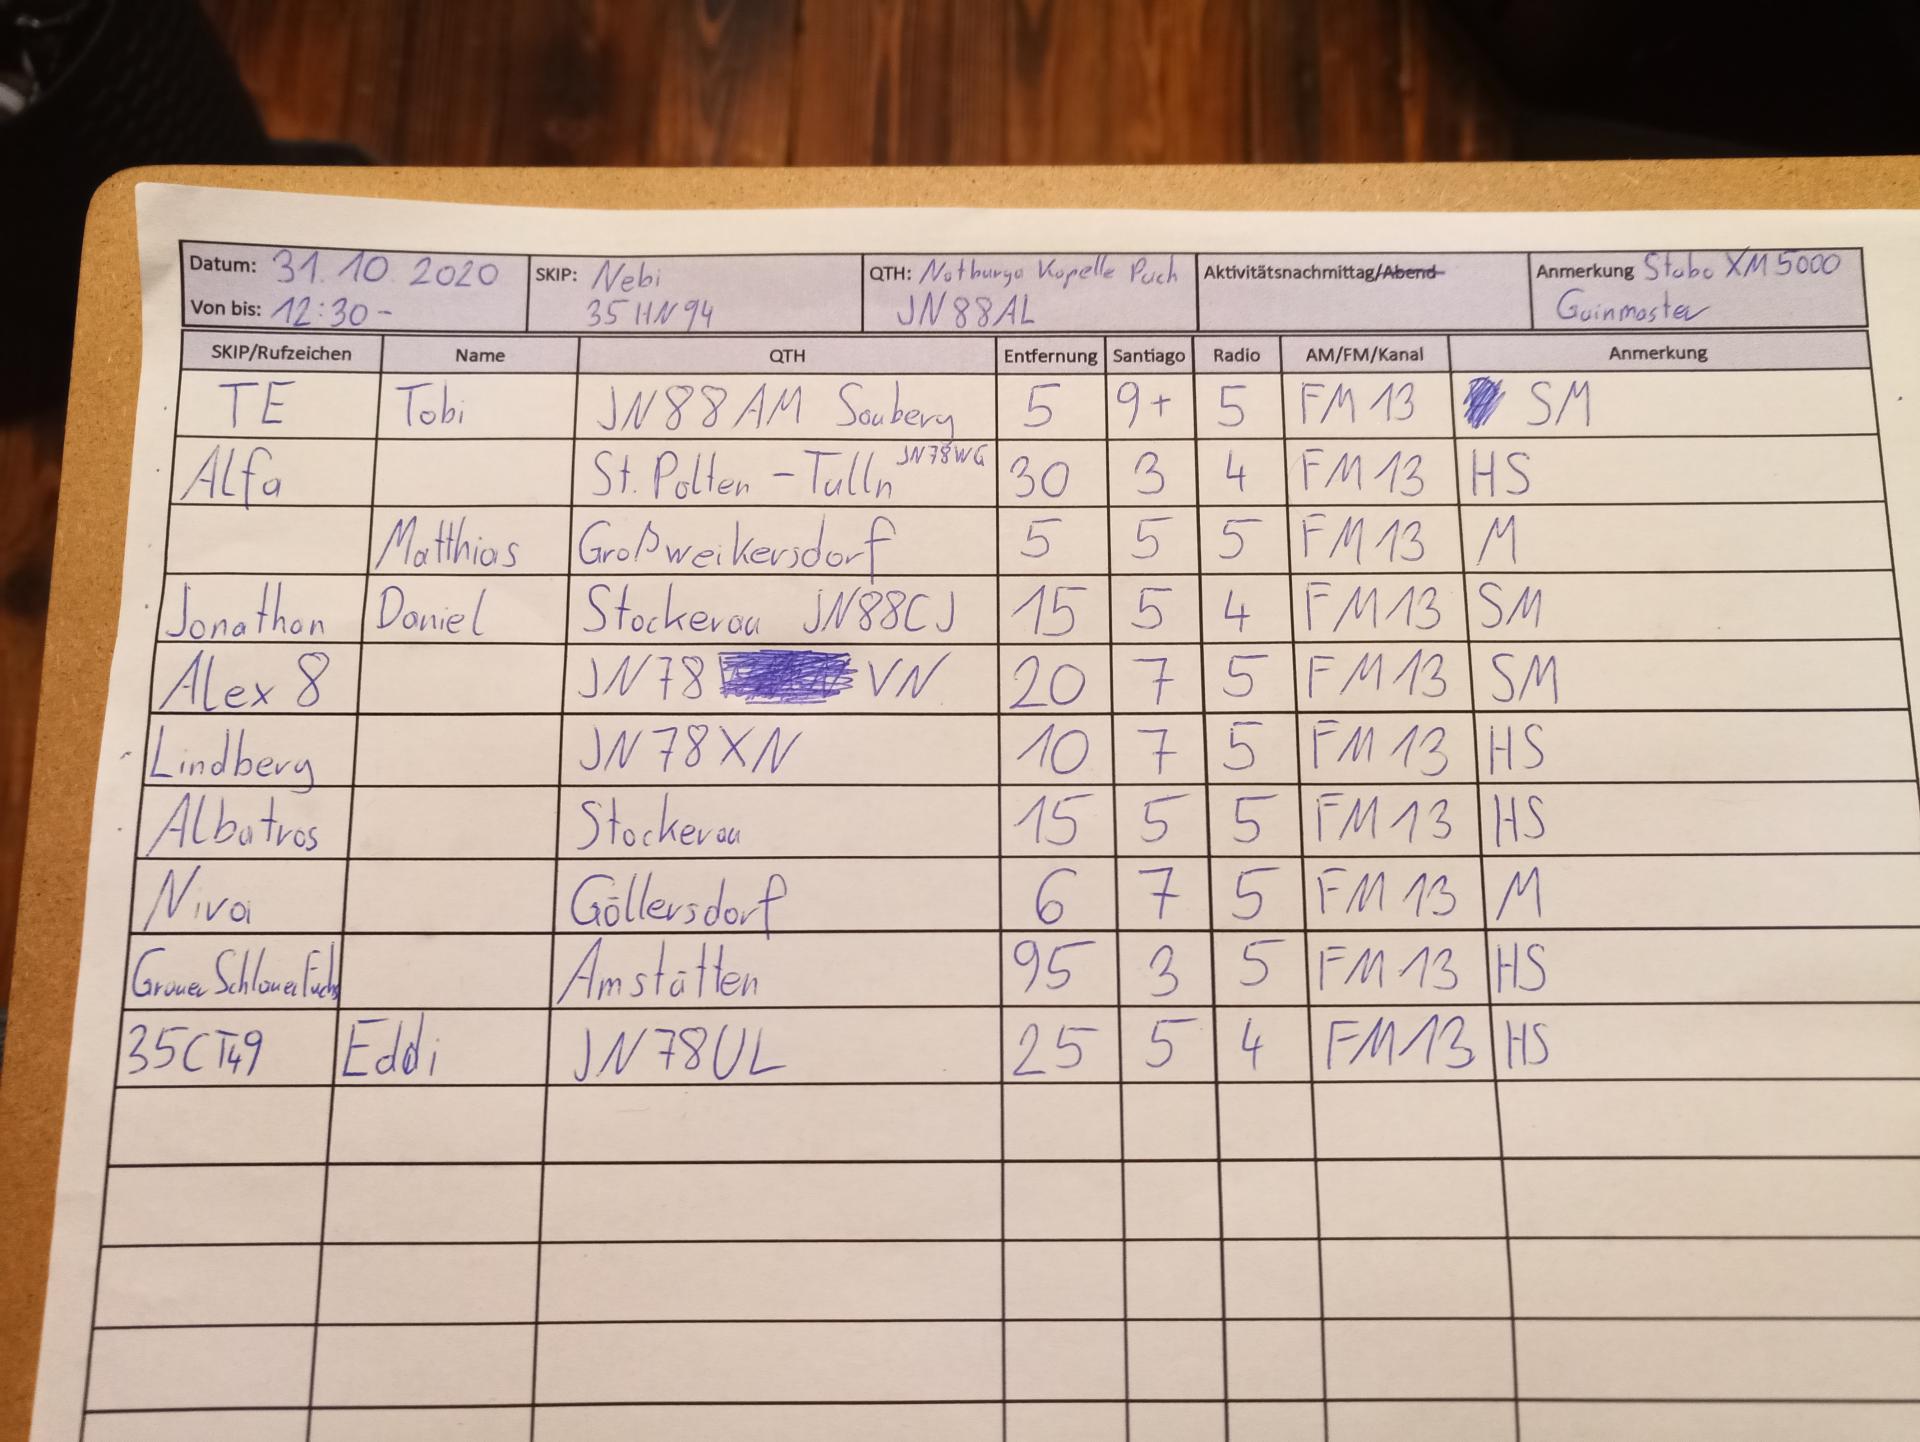 Datum: 31.10.2020 SKIP: Nebi QTH: Notburga Kapelle Puch Aktivitätsnachmittag/Abend Anmerkung Stabo XM5000
Von bis: 12:30- 35HN94 JN88AL Gainmaster
SKIP/Rufzeichen Name QTH Entfernung Santiago Radio AM/FM/Kanal Anmerkung
TE Tobi JN88AM Sauberg 5 9+ 5 FM 13 SM
Alfa St. Polten - Tulln JN78WG 30 3 4 FM 13 HS
Matthias Großweikersdorf 5 5 5 FM 13 M
Jonathan Daniel Stockerau JN88CJ 15 5 4 FM 13 SM
Alex 8 JN78 VN 20 7 5 FM 13 SM
Lindberg JN78XN 10 7 5 FM 13 HS
Albatros Stockerau 15 5 5 FM 13 HS
Göllersdorf 6 7 5 FM 13 M
Grauer Schlauer Fuchs Amstätten 95 3 5 FM 13 HS
35CT49 Eddi JN78UL 25 5 4 FM 13 HS